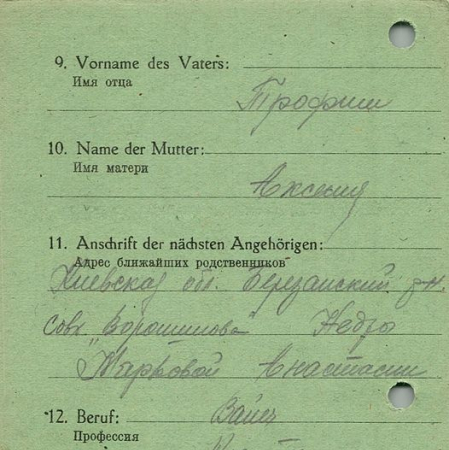 9. Vorname des Vaters:
Имя отца
Трофим
10. Name der Mutter:
Имя матери
Аксения
11. Anschrift der nächsten Angehörigen:
Адрес ближайших родственников
Киевская обл. Березанский р-н
Совх. „Ворошилова“ Недра
Анастасии
12. Beruf:
Bauer
Профессия